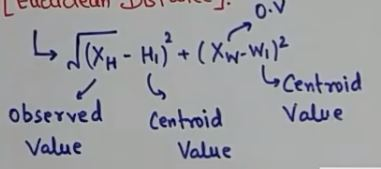 [Euclidean Distance].
O.V
↳ √(X_H - H₁)² + (X_W - W₁)²
Observed Value
Centroid Value
Centroid Value